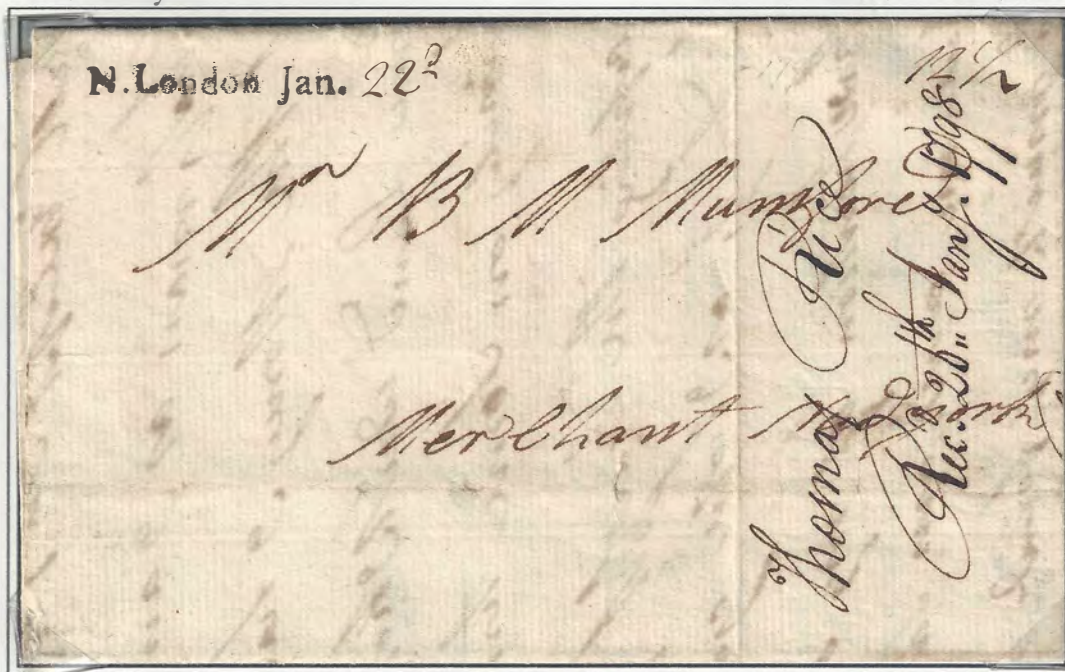 N.London Jan. 22d
12 1/2
Mr B M Mumford
Merchant New York
Thomas Rice
Rec. 26th Jany. 1798